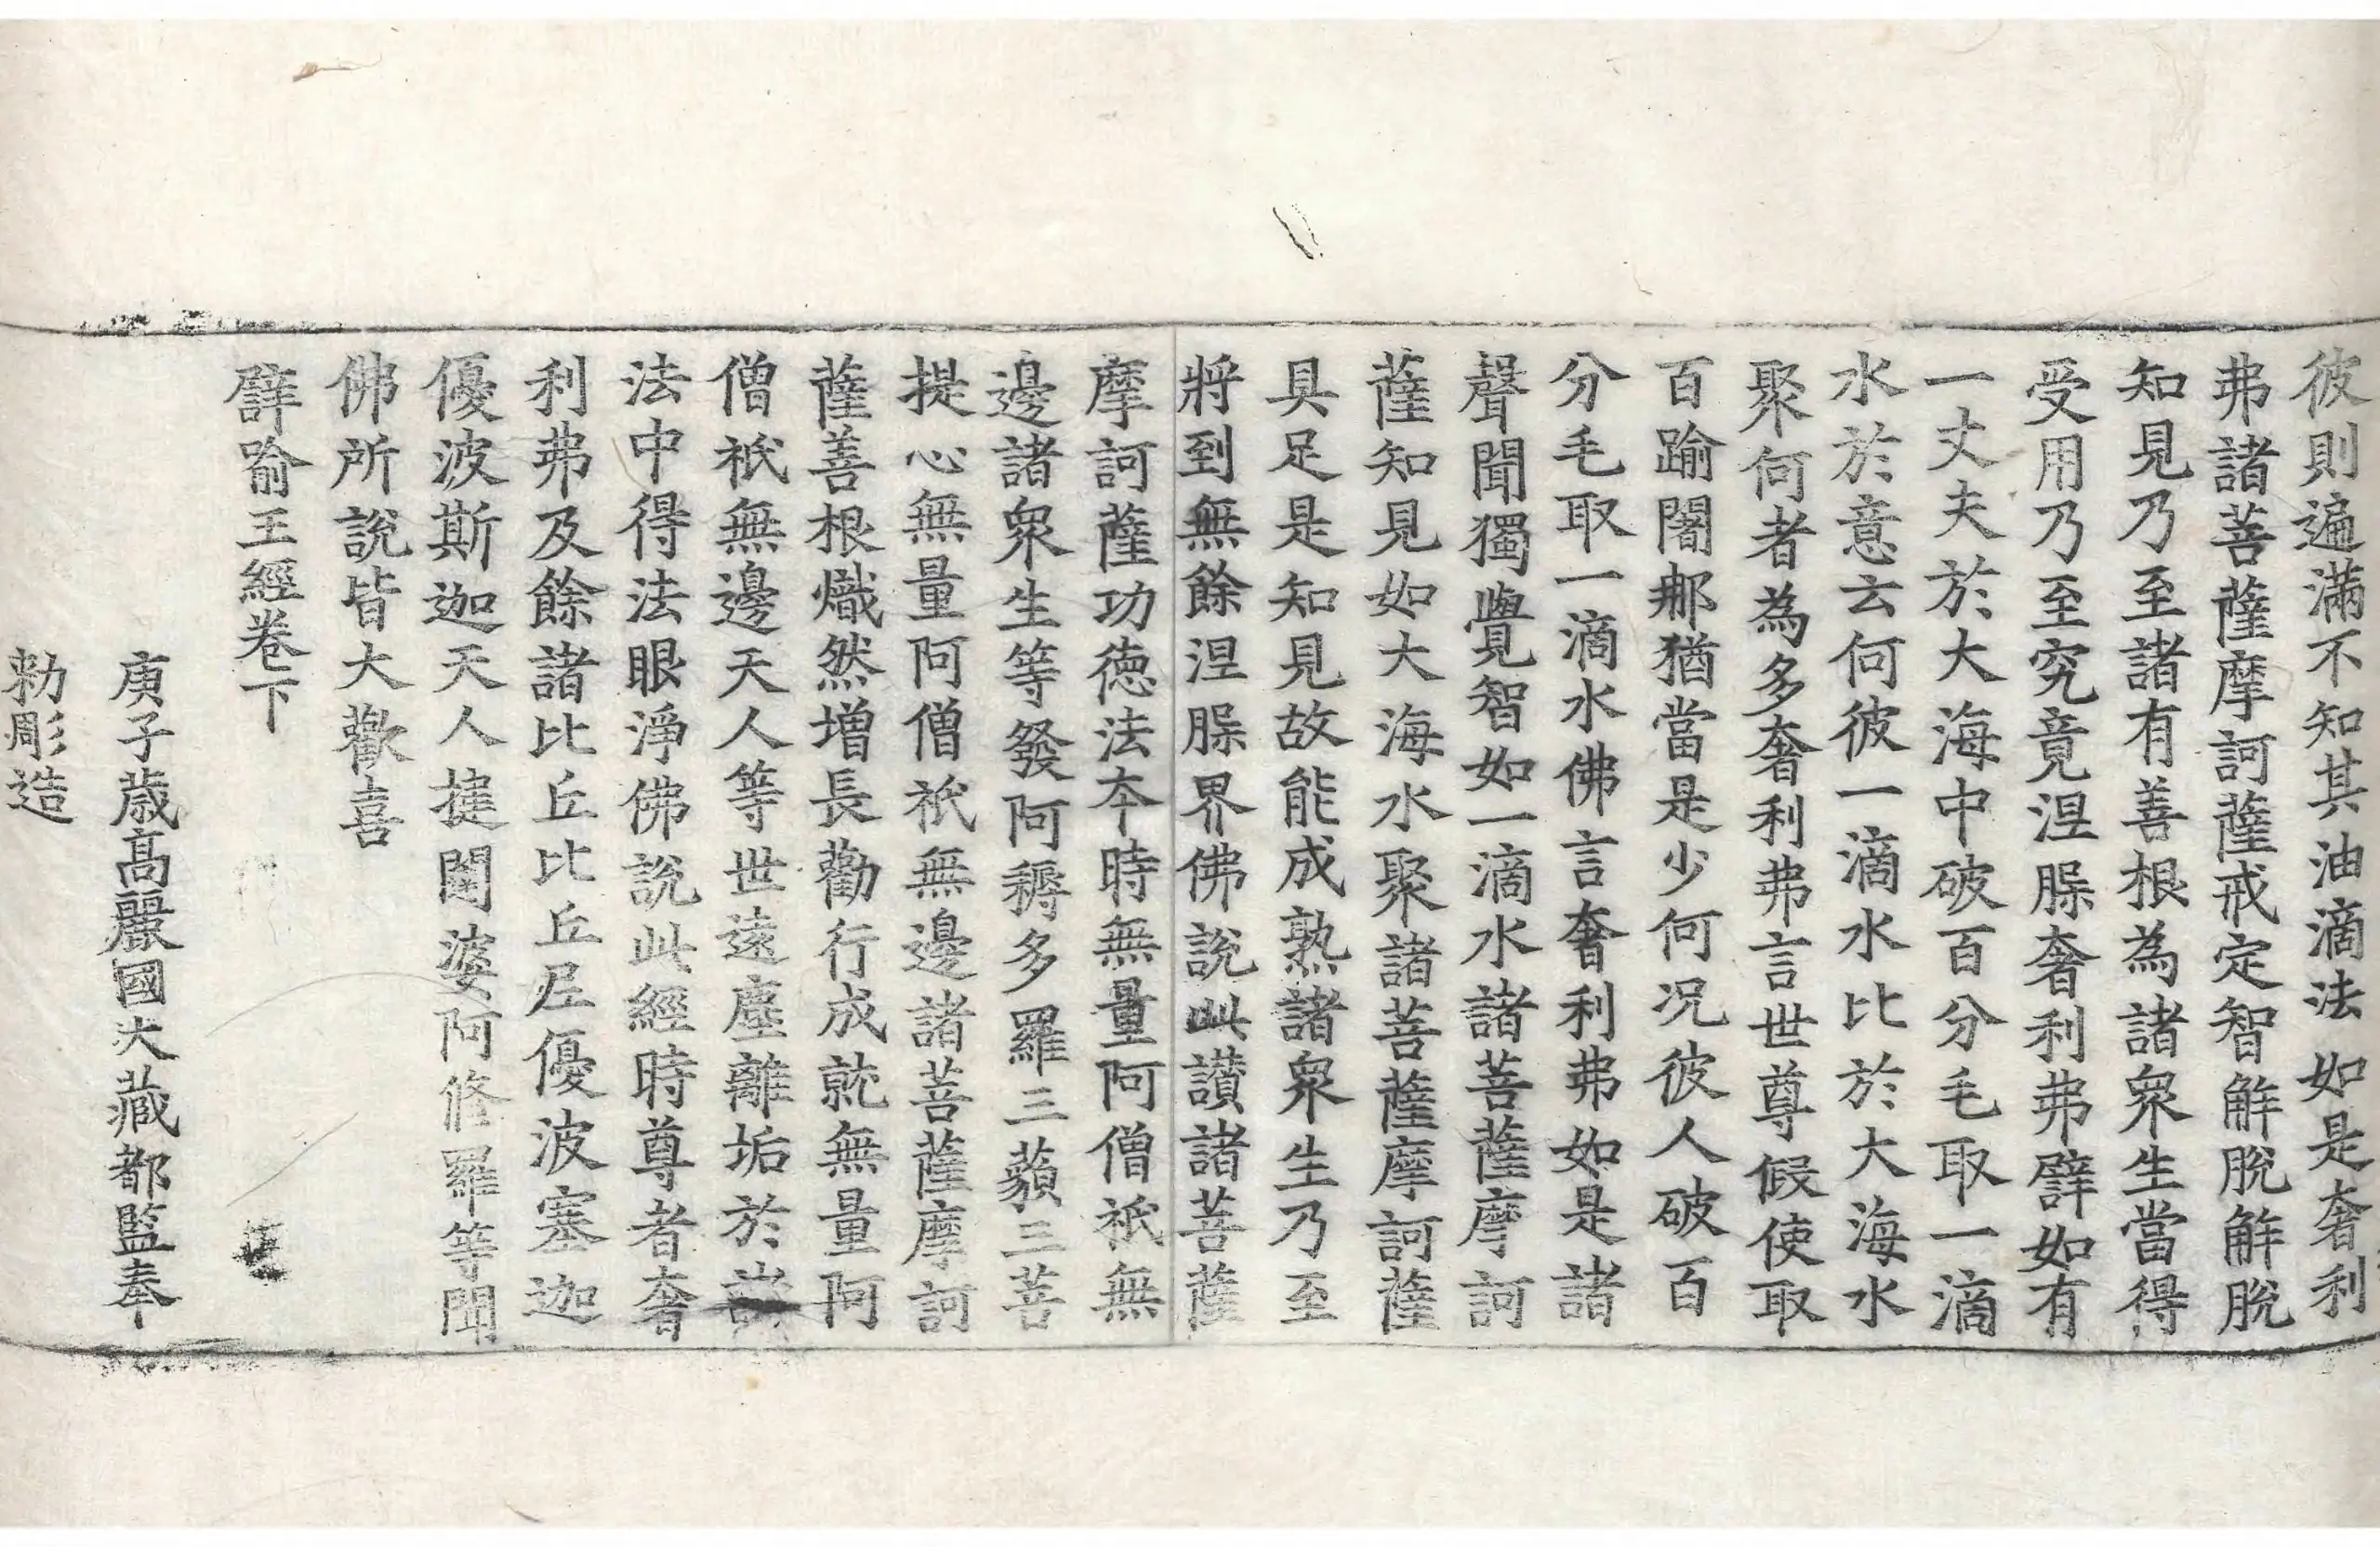 彼則遍滿不知其油滴法如是奢利
弗諸菩薩摩訶薩戒定智解脫解脫
知見乃至諸有善根為諸衆生當得
受用乃至究竟涅䏶奢利弗譬如有
一丈夫於大海中破百分毛取一滴
水於意云何彼一滴水比於大海水
聚何者為多奢利弗言世尊假使取
百踰闍那猶當是少何况彼人破百
分毛取一滴水佛言奢利弗如是諸
聲聞獨覺智如一滴水諸菩薩摩訶
薩知見如大海水聚諸菩薩摩訶薩
具足是知見故能成熟諸衆生乃至
將到無餘涅䏶界佛說此讚諸菩薩
摩訶薩功德法夲時無量阿僧祇無
邊諸衆生等發阿耨多羅三藐三菩
提心無量阿僧祇無邊諸菩薩摩訶
薩善根熾然增長勸行成就無量阿
僧祇無邊天人等世遠塵離垢於諸
法中得法眼淨佛說此經時尊者奢
利弗及餘諸比丘比丘尼優波塞迦
優波斯迦天人揵闥婆阿修羅等聞
佛所說皆大歡喜
譬喻王經卷下
庚子歲高麗國大藏都監奉
勑彫造